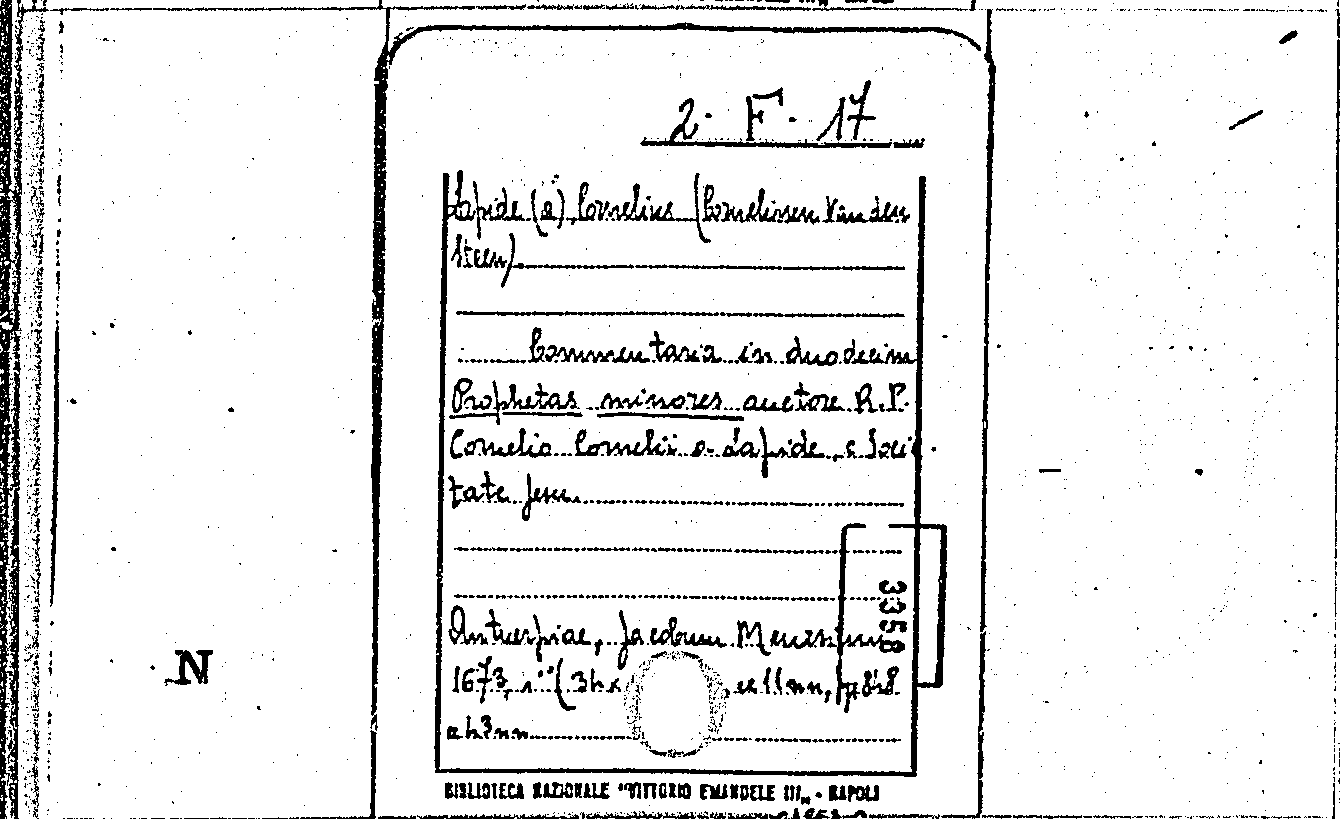 2. F. 17
Lapide (a) Cornelius (Cornelissen Van den
Steen).
Commentaria in duodecim
Prophetas minores auctore R.P.
Cornelio Cornelii a Lapide, e Socie
tate Jesu.
3358
Antuerpiae, Jacobum Meursium
1673,
nn.
N
BIBLIOTECA NAZIONALE "VITTORIO EMANUELE III„ - NAPOLI